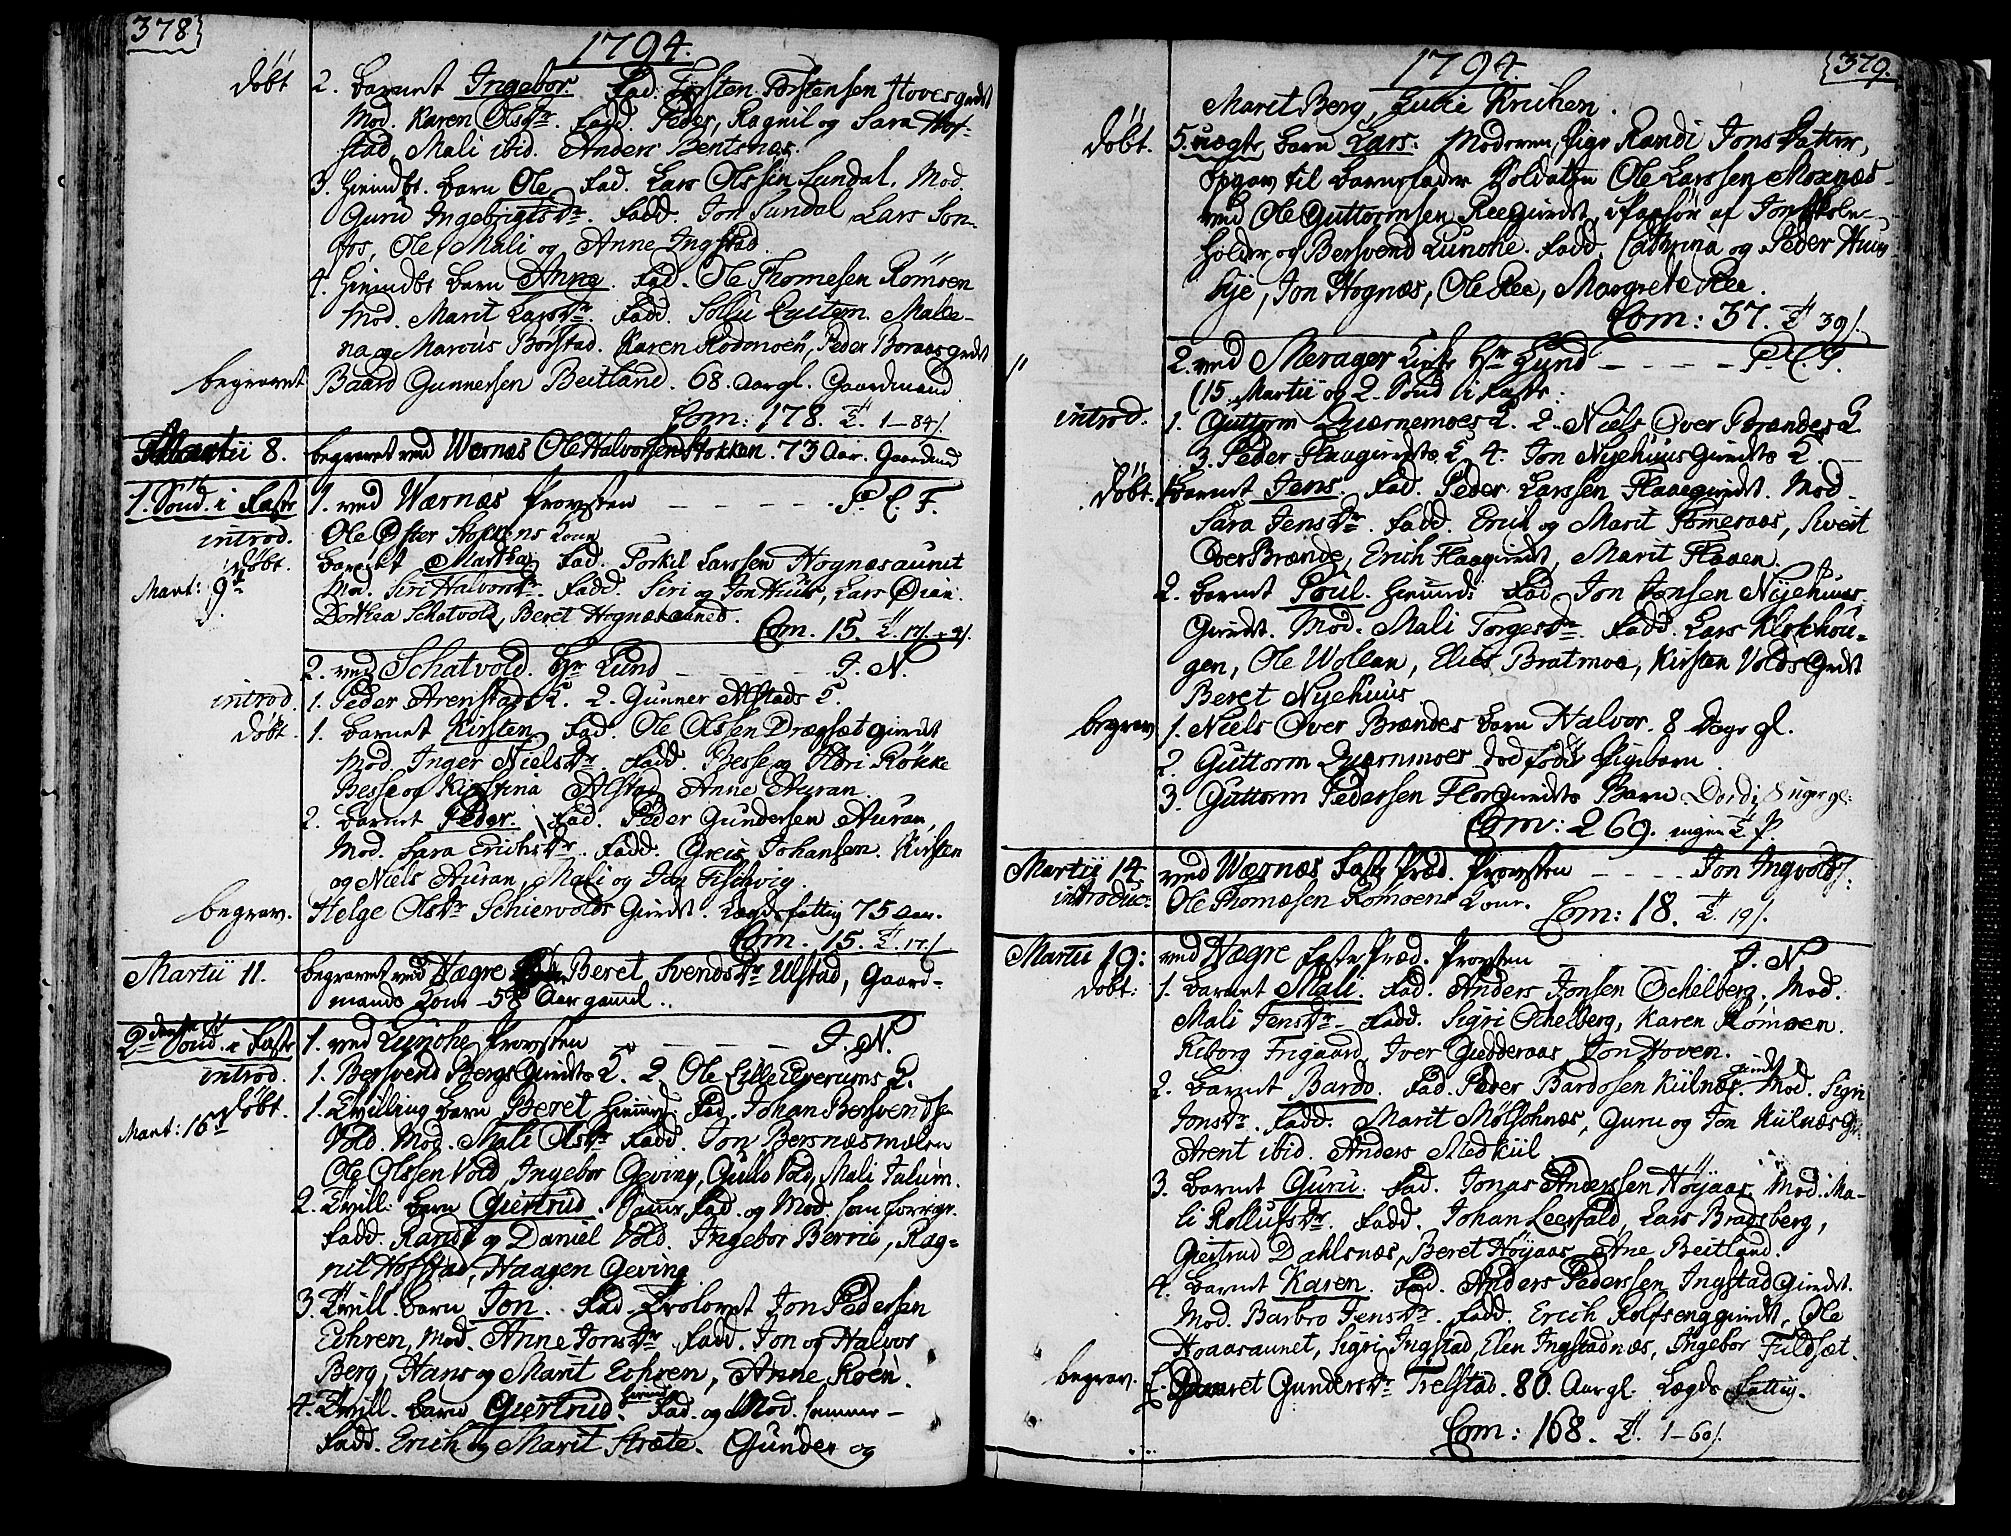 378
1794.
døbt 2. Barnet Ingebor. Fad. Torsten Torstensen Hovesgrdst
Mod. Karen Olsdr. Fadd. Peder, Ragnil og Sara Hof-
stad, Mali ibid. Anders Bentsnæs.
3. hiemdbt. Barn Ole. Fad. Lars Olssen Sundal. Mod.
Guru Ingebrigtsdr. Fadd. Jon Sundal, Lars
Ole, Mali og Anne Ingstad.
4. hiemdbt Barn Anne. Fad. Ole Thomesen Römoen
Mod. Marit Larsdr. Fadd. Male-
na og Marcus Børstad. Karen Rödmoen, Peder Boraasgrdst
begravet Baard Gunnersen Beitland. 68. Aar gl. Gaardmand
Com: 178. 1-84/.
Martii 8. begravet ved Wærnæs Ole Halvorsen Stokkan. 73 Aar. Gaardmd
1. Sønd. i Faste 1. ved Wærnæs Provsten - - - - - P. C. F.
introd. Ole Øster Stokkens Kone
døbt. Barnet Martha. Fad. Torkel Larssen Hognæsaunet
Mart: 9de Mod. Siri Halvorsdr. Fadd. Siri og Jon Huus, Lars Øian.
Dorthea Schatvold, Beret Hognæsaunet.
Com. 15.
2. ved Schatvold. Hr Lund - - - - J. N.
introd. 1. Peder Arenstads K. 2. Gunner Alstads K.
døbt. 1. Barnet Kirsten. Fad. Ole Olssen Drægsetgrindst
Mod. Inger Nielsdr. Fadd. Besse og Ildri Røkke
Besse og Kirstina Alstad, Anne Auran.
2. Barnet Peder. Fad. Peder Gundersen Auran,
Mod. Sara Erichsdr. Fadd. Greis Johansen. Kirsten
og Niels Auran, Mali og Jon Fischvig.
begrav. Helge Olsdr Schiervolds Grindst. Lægdsfattig 75 Aar.
Com. 15. 17./
Martii 11. begravet ved Hægre Beret Svendsdr Ulstad, Gaard-
mands Kone 58 Aar gammel.
2den Sønd. i Faste 1. ved Lunche Provsten - - - - J. N.
introd. 1. Bersvend Bergs Grindsts K. 2. Ole Lille Everums K.
døbt. 1. Tvilling Barn Beret hiemd. Fad. Johan Bersvendse
Mart: 16de Vold. Mod. Mali Olsdr Fadd. Jon Bersnæsmelen
Ole Olssen Vold, Ingebor Geving, Vold, Mali Julum.
2. Tvill. Barn Giertrud. Samme Fad. og Mod. som forrige.
Fadd. Randi og Daniel Vold. Ingebor Berrie, Rag-
nil Hofstad, Haagen Geving
3. Tvill. Barn Jon. Fad. Trolovet Jon Pedersen
Echren, Mod. Anne Jonsdr Fadd. Jon og Halvor
Berg, Hans og Marit Echren, Anne Roen.
4. Tvill. Barn Giertrud. hiemd. Fad. og Mod. samme -
Fadd. Erich og Marit Stræte. Gunder og
379.
1794.
Marit Berg,
døbt. 5. uægte Barn Lars. Moderen Pige Randi Jons Datter,
opgav til Barnefader Soldaten Ole Larssen Moxnæs -
ved Ole Guttormsen Reegrindst, af Jon Skole-
holder og Bersvend Lunche. Fadd. Cathrina og Peder Huus
bye, Jon Hognæs, Ole Ree, Margrete Ree.
Com: 37. 39/.
2. ved Merager Kirke Hr Lund - - - - - P. C. F.
(15 Martii og 2. Sønd i Faste:
introd. 1. Guttorm Quærnemoes K. 2. Niels Over Brændes K
3. Peder Flaagrindsts K. 4. Jon Nyehuus Grindsts K
døbt. Barnet Jens. Fad. Peder Larssen Flaaegrindst. Mod -
Sara Jensdr. Fadd. Erich og Marit Tømeraas, Sveit
Over Brænde, Erich Flaagrindst, Marit Flaaen.
2. Barnet Poul. hiemd: Fad. Jon Jonsen Nyehuus
Grindst. Mod. Mali Torgersdr. Fadd. Lars Klokhou-
gen, Ole Wollan, Elies Bratmoe, Kirsten Volds Grdst
Beret Nyehuus
begrav 1. Niels Over Brændes Barn Halvor. 8 Dage gl.
2. Guttorm Quærnmoes dødfødt Pigebarn
3. Guttorm Pedersen Flor Grindsts Barn Dordi, 8 uger gl:
Com: 269. ingen
Martii 14. ved Wærnæs Faste Præd. Provsten - - - - Jon Ingvolds.
introduc: Ole Thomæsen Römoens Kone. Com: 18. 19/.
Martii 19: ved Hægre Faste Præd. Provsten - - - J. N
døbt: 1. Barnet Mali. Fad. Anders Jonsen Ochelberg. Mod.
Mali Jensdr - Fadd. Sigri Ochelberg, Karen Römoen.
Kiborg Frigaard, Iver Gudderaas, Jon Hoven.
2. Barnet Bardo. Fad. Peder Bardosen Kiilnæs grindst. Mod. Sigri
Jonsdr. Fadd. Marit Mølsohnæs, Guru og Jon Kiilnæs Gr.
Arent ibid. Anders Medkiil
3. Barnet Guru. Fad. Jonas Anderssen Höyaas. Mod. Ma-
li Rollufsdr. Fadd. Johan Leerfald, Lars Bradsberg,
Giertrud Dahlsnæs, Beret Höyaas, Ane Beitland.
4. Barnet Karen. Fad. Anders Pederssen Ingstad grindst.
Mod. Barbro Jensdr. Fadd. Erich Rolfsenggrindst, Ole
Hoaasaunet, Sigri Ingstad, Elen Ingstadnæs, Ingebor Fuldsæt.
begrav. Gundersdr Trelstad. 80. Aar gl. Lægds Fattig.
Com: 168. 1-60/.